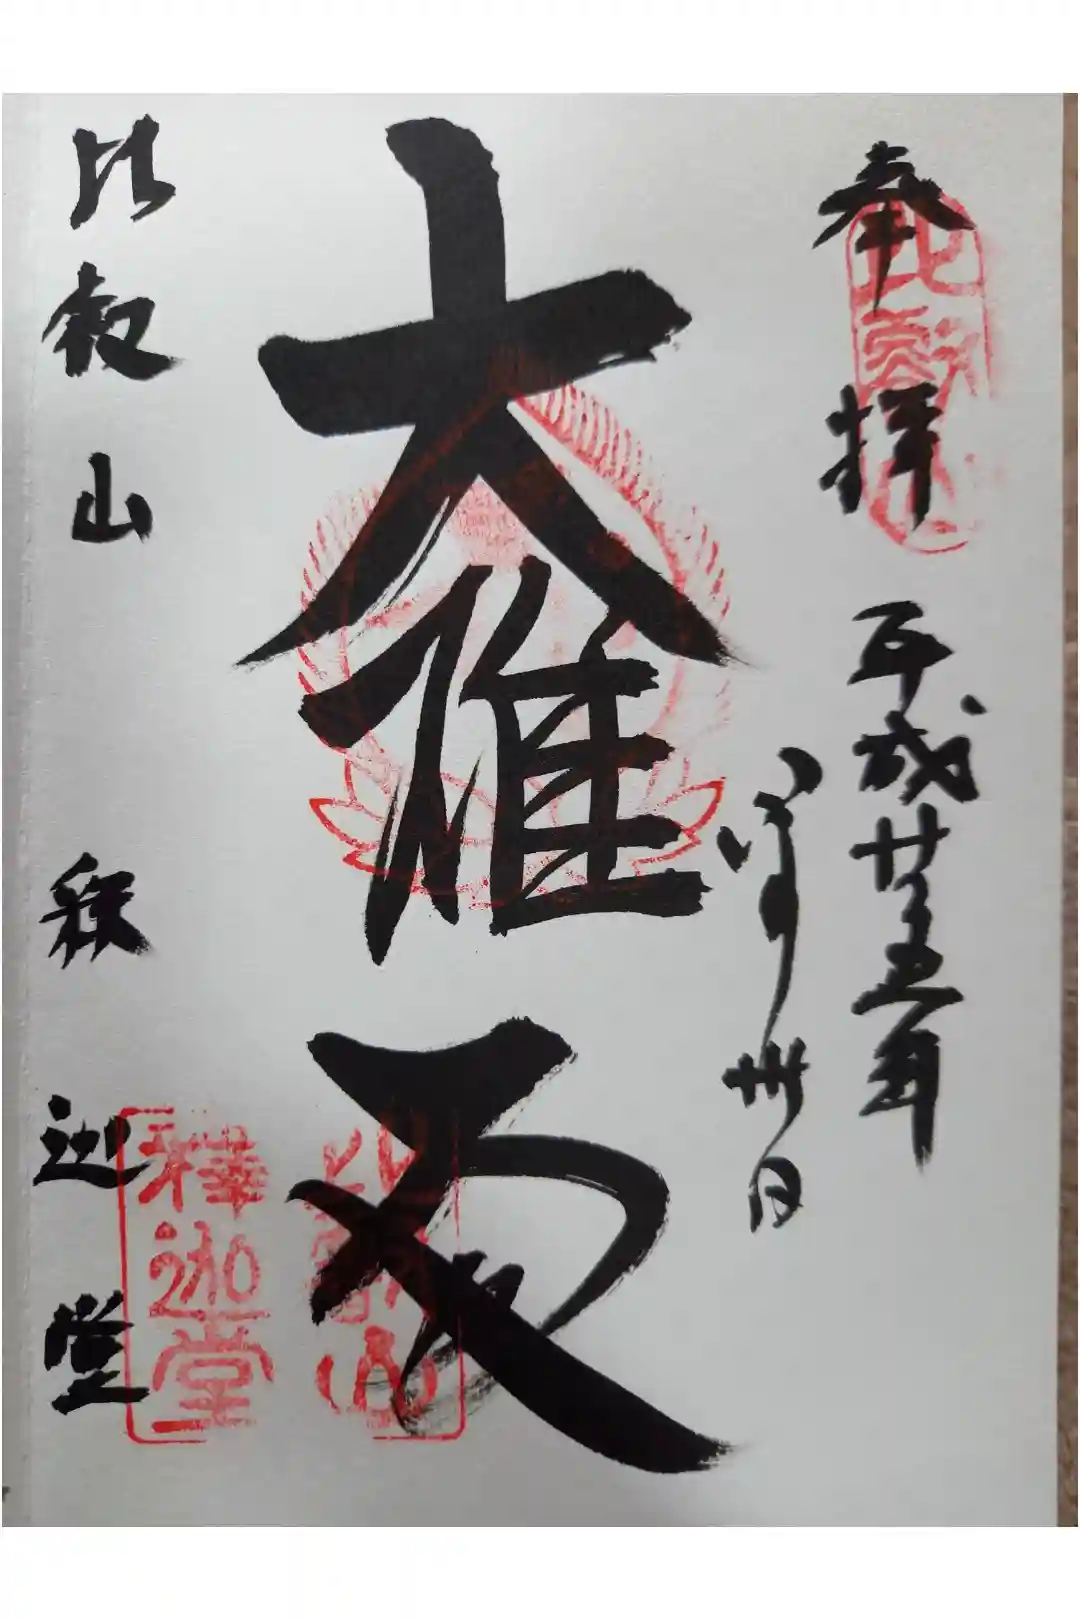 奉拝 平成廿五年
月卅日
大雄殿
比叡山 釈迦堂
比叡山
比叡山
釋迦堂